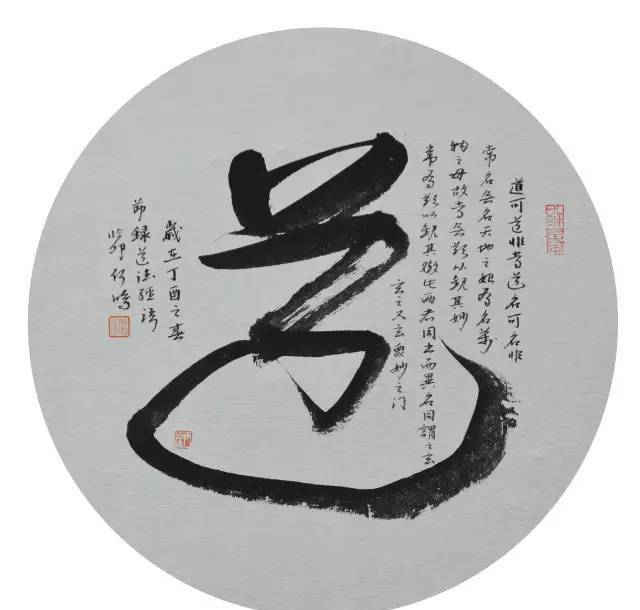 道可道非常道名可名非
常名無名天地之始有名萬
物之母故常無欲以觀其妙
常有欲以觀其徼此兩者同出而異名同謂之玄
玄之又玄衆妙之门
道
歲在丁酉之春
節録道德經語